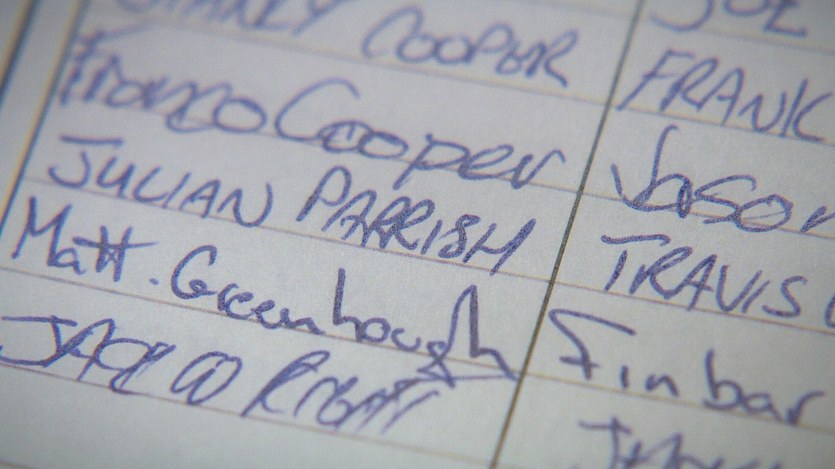 COOPER
JOE
Franco Cooper
FRANK
JULIAN PARRISH
Jason
Matt. Greenhough
TRAVIS
JACK WRIGHT
Finbar